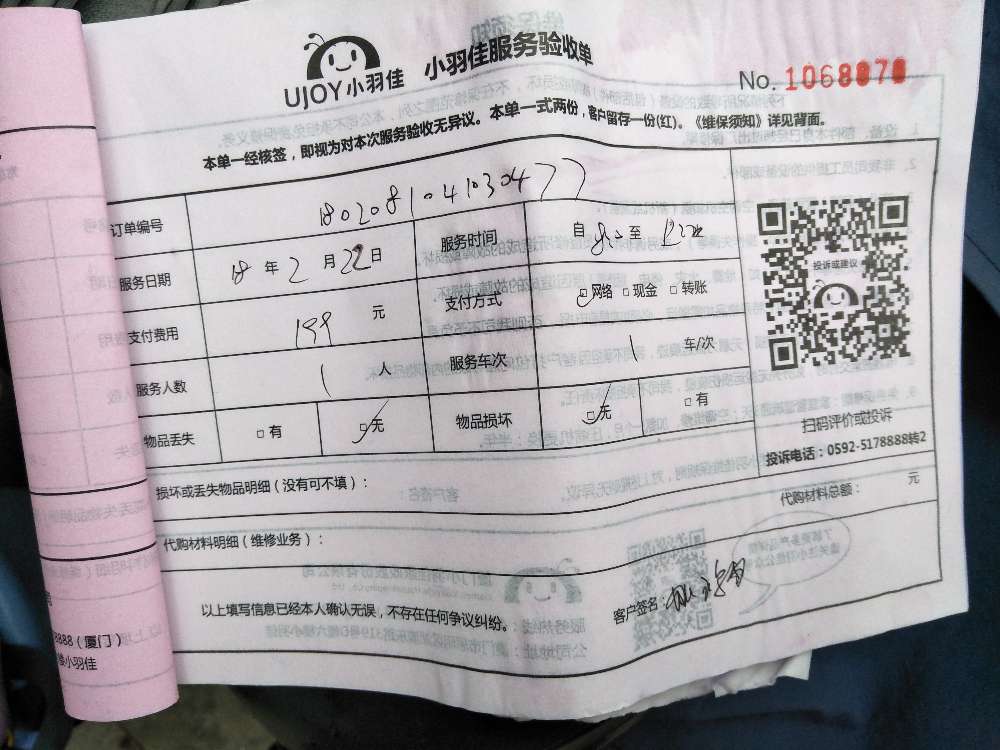 UJOY小羽佳 小羽佳服务验收单
No. 1068070
本单一经核签，即视为对本次服务验收无异议。本单一式两份，客户留存一份(红)。《维保须知》详见背面。
订单编号 1802081041030477
服务日期 18 年 2 月 22 日 服务时间 自 至
支付费用 199 元 支付方式 ☑网络 □现金 □转账
服务人数 1 人 服务车次 1 车/次
物品丢失 □有 ☑无 物品损坏 ☑无 □有
投诉或建议
扫码评价或投诉
投诉电话：0592-5178888转2
损坏或丢失物品明细（没有可不填）：
代购材料明细（维修业务）： 代购材料总额： 元
以上填写信息已经本人确认无误，不存在任何争议纠纷。 客户签名：
8888（厦门）
小羽佳